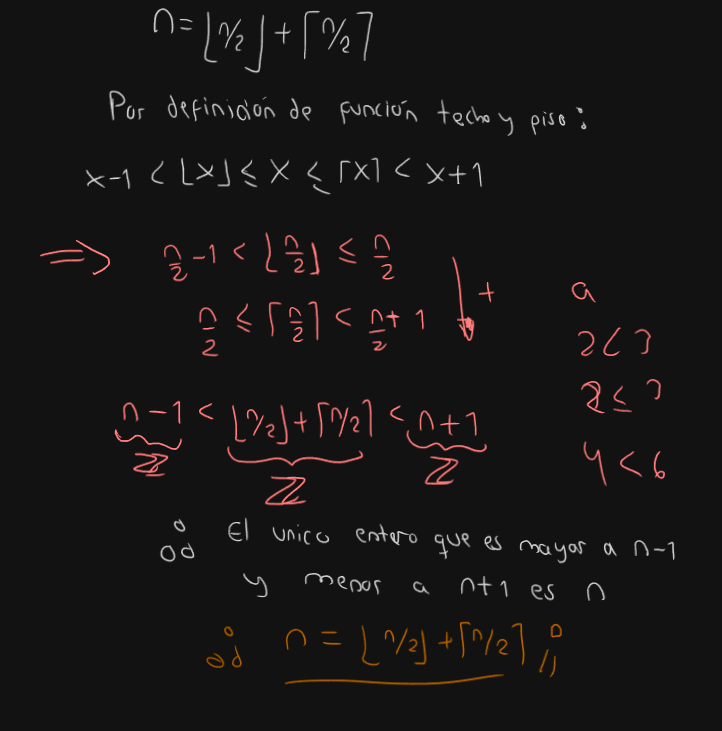 n = ⌊n/2⌋ + ⌈n/2⌉
Por definición de función techo y piso:
x-1 < ⌊x⌋ ≤ x ≤ ⌈x⌉ < x+1
⇒ n/2 - 1 < ⌊n/2⌋ ≤ n/2
n/2 ≤ ⌈n/2⌉ < n/2 + 1
+
a
2 < 3
2 ≤ 3
4 < 6
n-1 < ⌊n/2⌋ + ⌈n/2⌉ < n+1
ℤ ℤ ℤ
∴ El unico entero que es mayor a n-1
y menor a n+1 es n
∴ n = ⌊n/2⌋ + ⌈n/2⌉